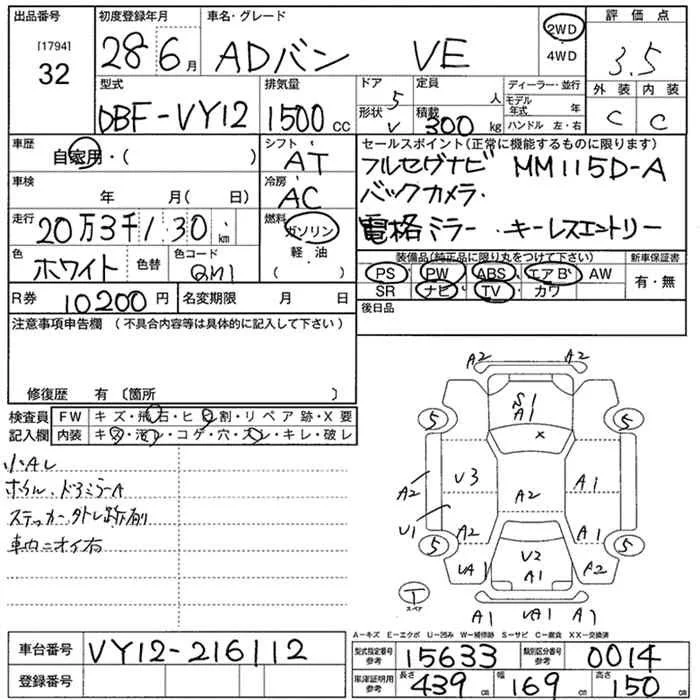 出品番号
[1794]
32
初度登録年月
28年6月
車名・グレード
ADバン VE
2WD
4WD
評価点
3.5
外装 内装
C C
型式
DBF-VY12
排気量
1500cc
ドア
5
形状
V
定員
人
積載
300kg
ディーラー・並行
モデル年式 年
ハンドル 左・右
車歴
自家用・( )
シフト
AT
車検
年 月( 日)
冷房
AC
走行
20万3千130km
燃料
ガソリン
軽油
( )
色
ホワイト 色替
色コード
QM1
R券
10200円
名変期限 月 日
セールスポイント(正常に機能するものに限ります)
フルセグナビ MM115D-A
バックカメラ・
電格ミラー・キーレスエントリー
装備品(純正品に限り丸をつけて下さい)
PS PW ABS エアB AW
SR ナビ TV カワ
新車保証書
有・無
後日品
注意事項申告欄(不具合内容等は具体的に記入して下さい)
修復歴 有〔箇所 〕
検査員記入欄
FW キズ・飛石・ヒビ割・リペア跡・X要
内装 キズ・汚レ・コゲ・穴・スレ・キレ・破レ
小AU
ホイル・ドアミラーA
ステッカー外し跡有
車内ニオイ有
A2 A2
S1
A1
X
5 5
A2
U3
A2
A1
U1
A2
A1
5 5
UA1
U2
A1
A2
T
スペア
A1 UA1 A1
A−キズ E−エクボ U−凹み W−補修跡 S−サビ C−腐食 XX−交換済
車台番号
VY12-216112
登録番号
型式指定番号
参考
15633
類別区分番号
参考
0014
車庫証明用
参考
長さ 439cm
幅 169cm
高さ 150cm